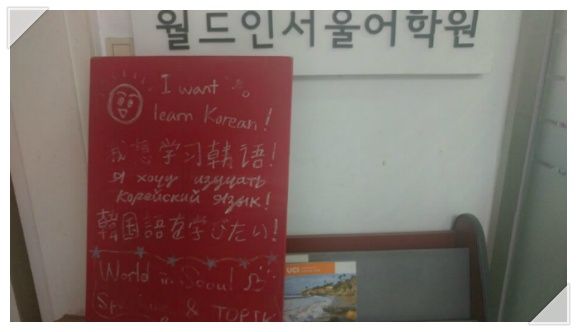 월드인서울어학원
I want to
learn Korean!
我想学习韩语!
Я хочу изучать
корейский язык!
韓国語を学びたい!
World in Seoul
& TOPIK
UCI